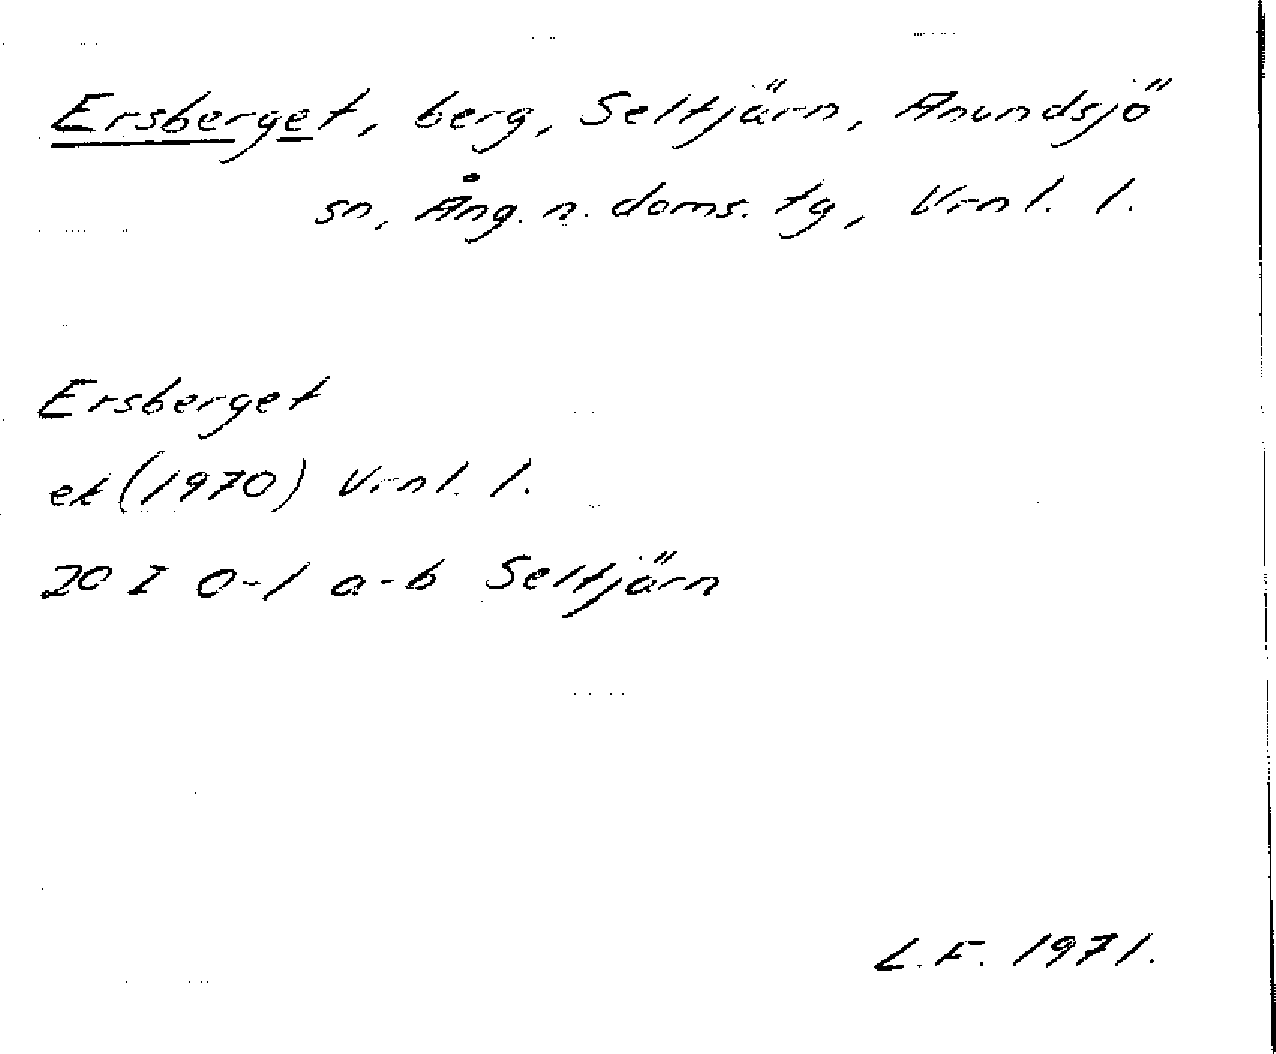 Ersberget, berg, Seltjärn, Anundsjö
sn, Ång. n. doms. tg, Vrnl. l.
Ersberget
ek (1970) Vrnl. l.
20 I 0-1 a-b Seltjärn
L.F. 1971.